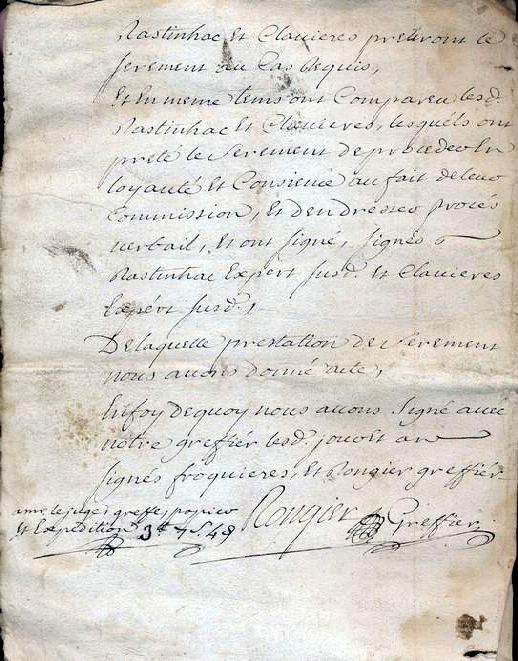 Rastinhac Et Clavieres preteront le
serement au Cas Requis,
Et En meme tems ont Compareu lesd.
Rastinhac Et Clavieres, lesquels ont
preté le Serement de proceder En
loyauté Et Consience au fait de leur
Commission, Et d'en dresser procés
verbail, Et ont signé, signés
Rastinhac Expert susd. Et Clavieres
Expert susd.,
De laquelle prestation de Serement
nous avons donné acte,
En foy dequoy nous avons Signé avec
notre greffiér lesd. jour Et an
signés froquieres, Et Rongier greffiér
amr. le juge greffe papier
Et Expedition 3tt 7s 4d Rongier Greffier